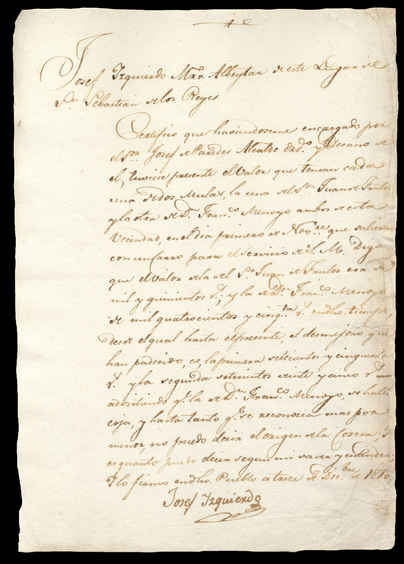 Josef Izquierdo Mro Albeytar de este Lugar de
Sn Sebastian de los Reyes
Certifico que haviendoseme encargado por
el Sor Josef Paredes Alcalde y vecino de
el, tuviese presente el valor que tenian cada
una de dos Mulas, la una de Sn Juan de Santos
y la otra de Dn Franco Menoyo ambos de esta
Vecindad, en el dia primero de Nobre que salieron
con para el servicio de S. M. Digo
que el valor de la de Sn Juan de Santos era de
mil y quinientos rs, y la de Dn Franco Menoyo
de mil quatrocientos y cinqta rs en dho tiempo
desde el qual hasta el presente, el desmejoro q.e
han padecido, es, la primera de doscientos y cinquenta
rs y la segunda setecientos veinte y cinco rs
advirtiendo q.e la de Dn Franco Menoyo, se halla
coja, y hasta tanto q.e se reconozca mas por
menor, no puedo decir el origen de la Cogera, q.e
es quanto puedo decir segun mi saver y entender
y lo firmo en dho Pueblo a trece de Dicbre de 1810
Josef Izquierdo